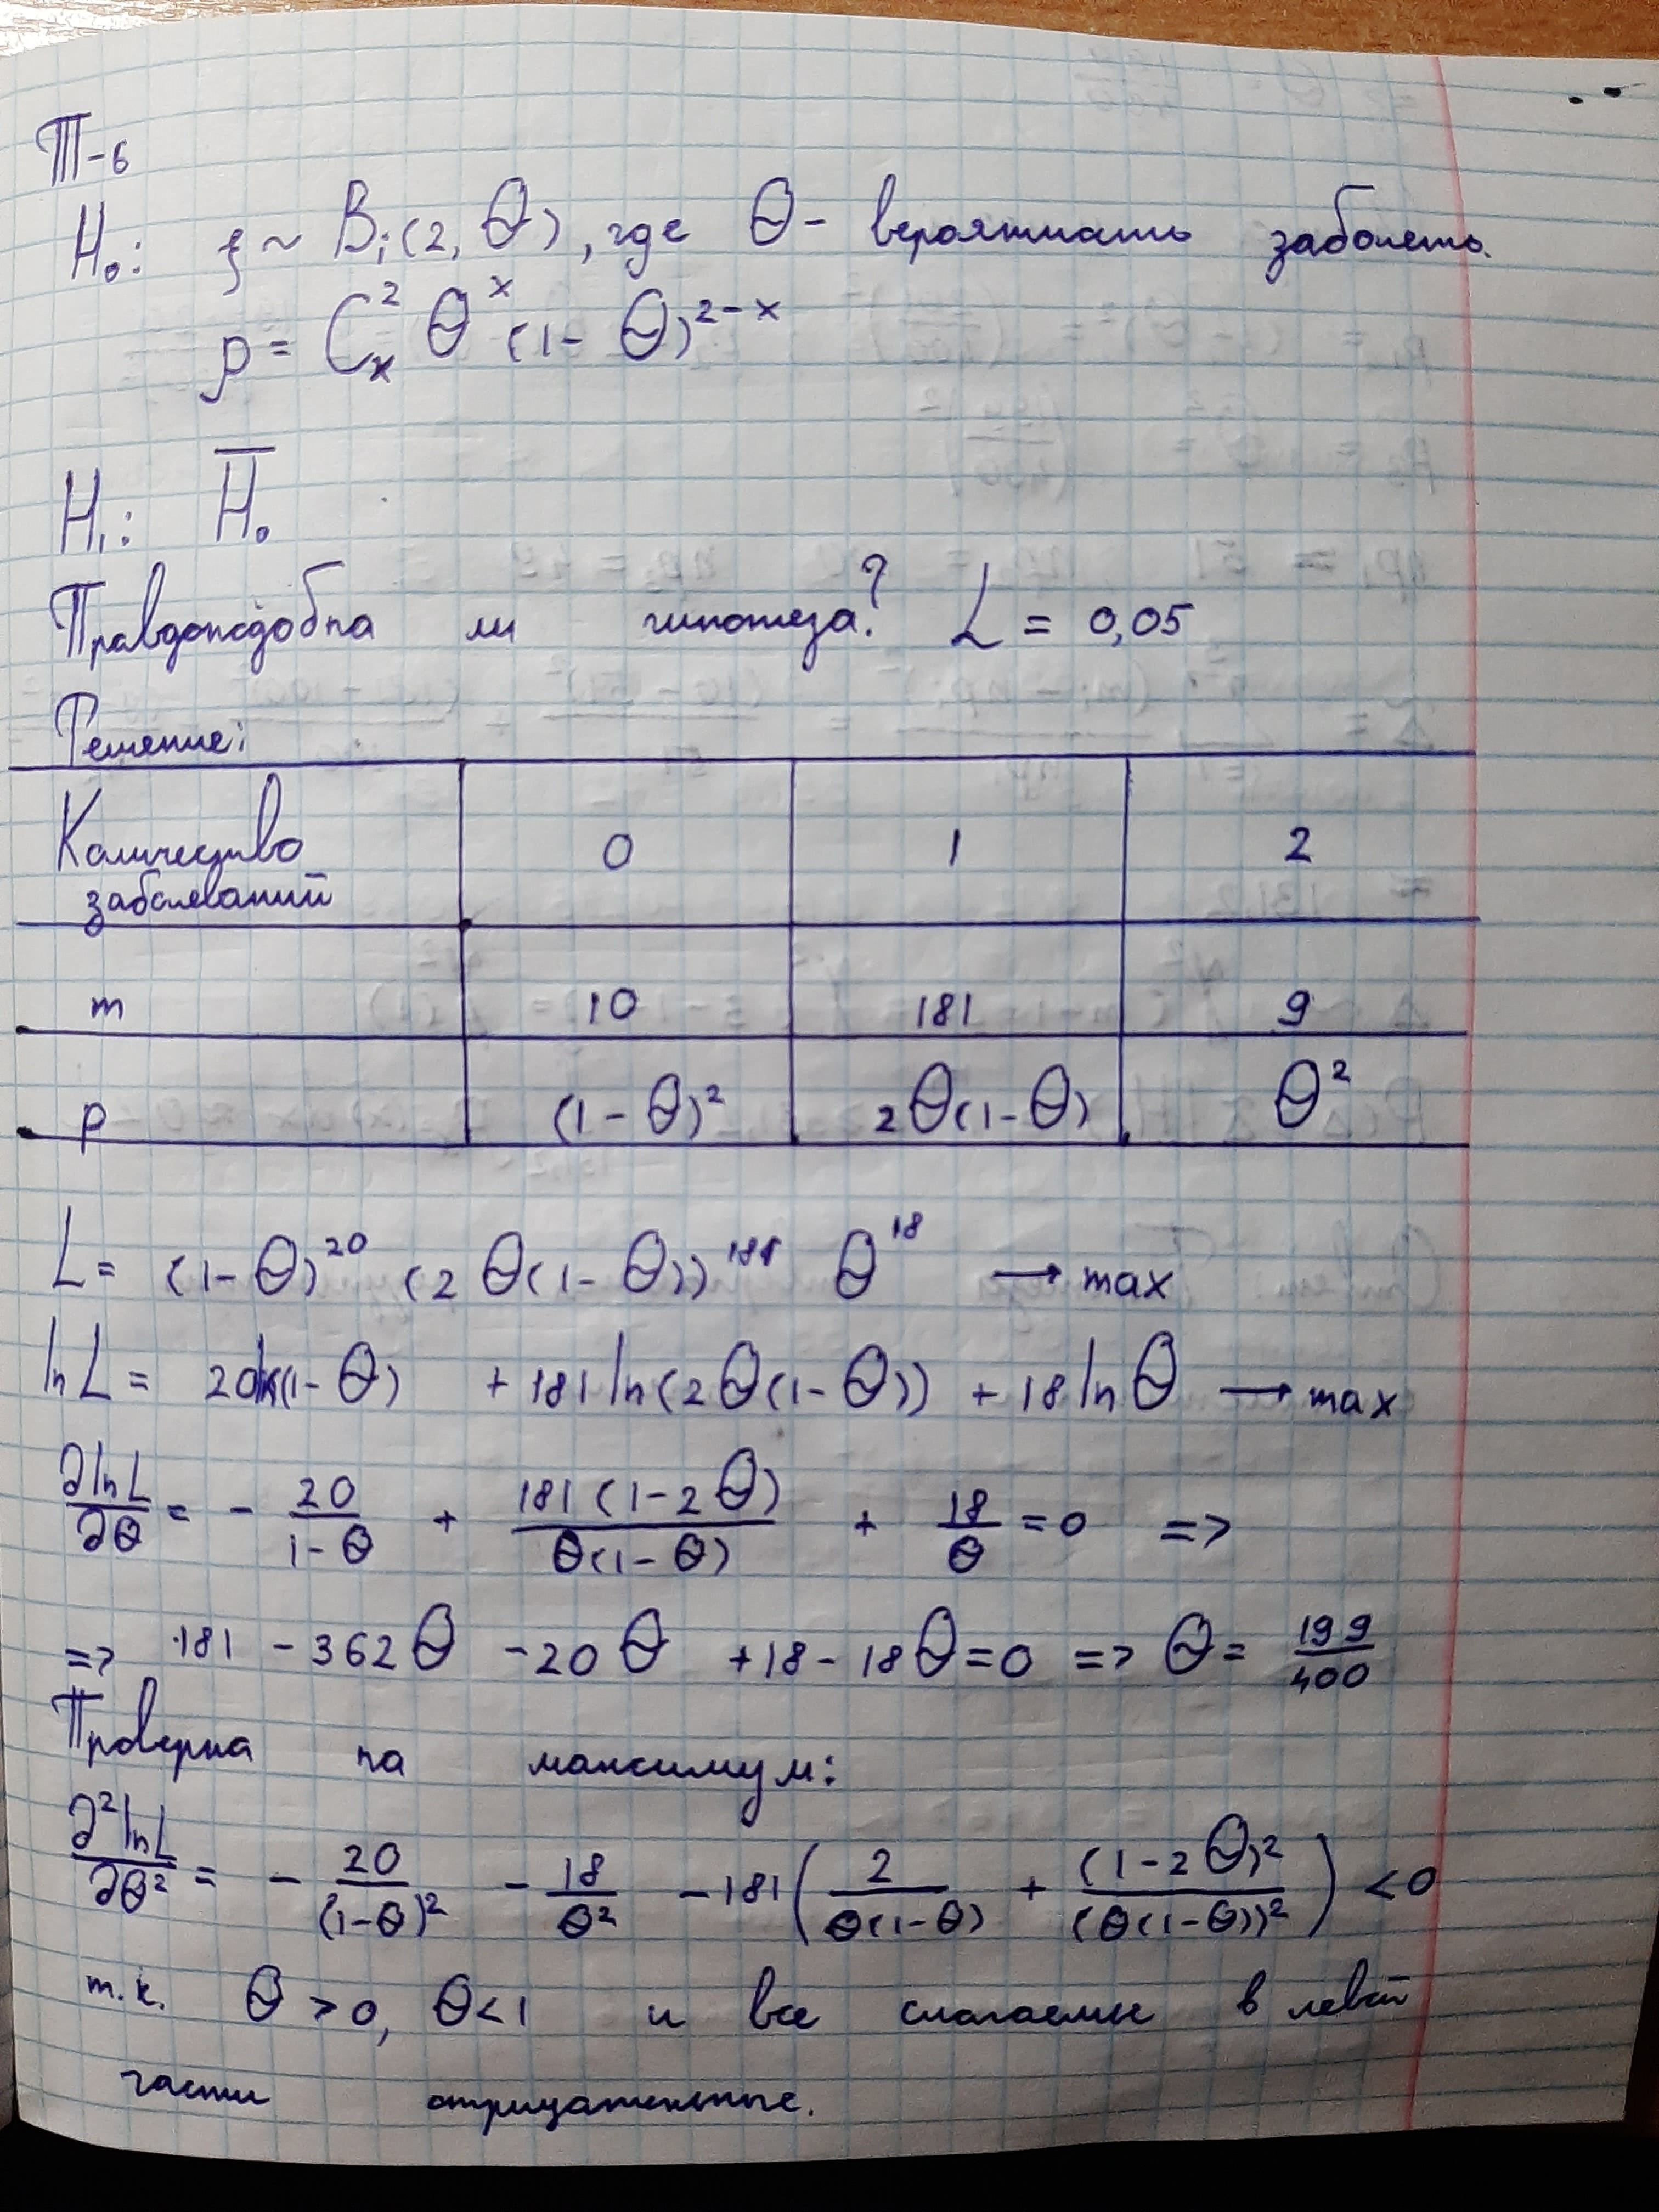 Т-6
H₀: ξ ~ Bi(2, θ), где θ - вероятность заболеть.
p = C²ₓ θˣ (1 - θ)²⁻ˣ
H₁: H̅₀
Правдоподобна ли гипотеза? L = 0,05
Решение:
Количество заболеваний 0 1 2
m 10 181 9
p (1-θ)² 2θ(1-θ) θ²
L = (1-θ)²⁰ (2θ(1-θ))¹⁸¹ θ¹⁸ → max
ln L = 20ln(1-θ) + 181 ln(2θ(1-θ)) + 18 ln θ → max
∂lnL/∂θ = - 20/(1-θ) + 181(1-2θ)/(θ(1-θ)) + 18/θ = 0 =>
=> 181 - 362θ - 20θ + 18 - 18θ = 0 => θ = 199/400
Проверка на максимум:
∂²lnL/∂θ² = - 20/(1-θ)² - 18/θ² - 181(2/(θ(1-θ)) + (1-2θ)²/(θ(1-θ))²) < 0
т.к. θ > 0, θ < 1 и все слагаемые в левой
части отрицательные.